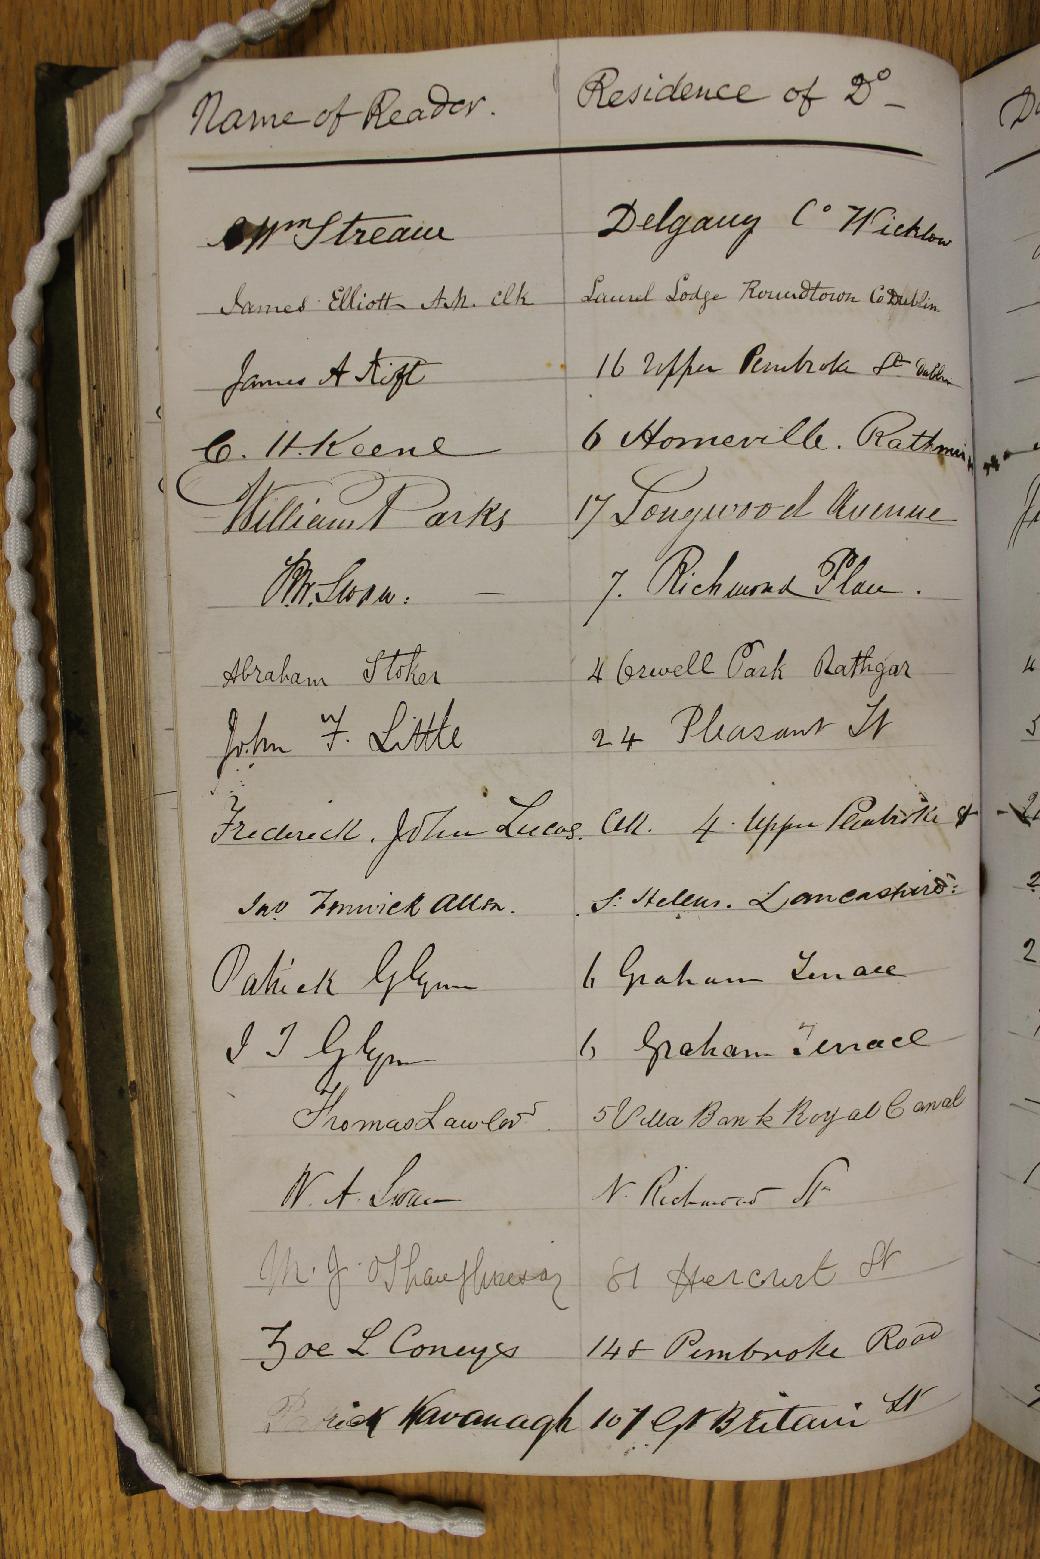 Name of Reader. Residence of Do
Wm Streane Delgany Co Wicklow
James Elliott A.M. Clk Laurel Lodge Roundtown Co Dublin
James A 16 Upper Pembroke St Dublin
C. H. Keene 6 Homeville. Rathmin
William Parks 17 Longwood Avenue
Swan. — 7. Richmond Place.
Abraham Stoker 4 Orwell Park Rathgar
John F. Little 24 Pleasant St
Frederick. John Lucas. Clk. 4. Upper Pembroke St
Jno Fenwick Allen. St Helens. Lancashire.
Patrick Glynn 6 Graham Terrace
J T Glynn 6 Graham Terrace
Thomas Lawlor 5 Villa Bank Royal Canal
W. A. Swan N. Richmond St
M. J. O'Shaughnessy 61 Harcourt St
Zoe L Coneys 148 Pembroke Road
Patrick Kavanagh 107 Gt Britain St